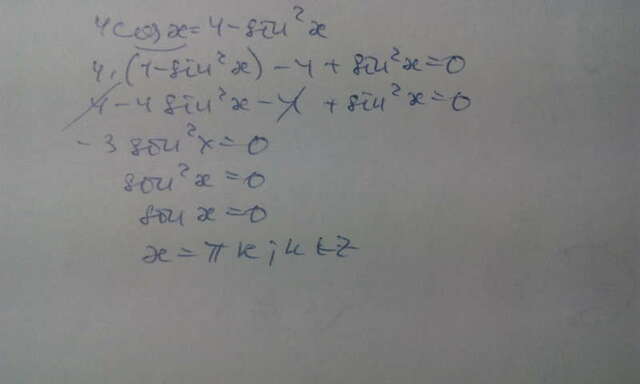 4cosx=4-sin²x
4·(1-sin²x)-4+sin²x=0
4-4sin²x-4+sin²x=0
-3sin²x=0
sin²x=0
sinx=0
x=πk;k∈Z